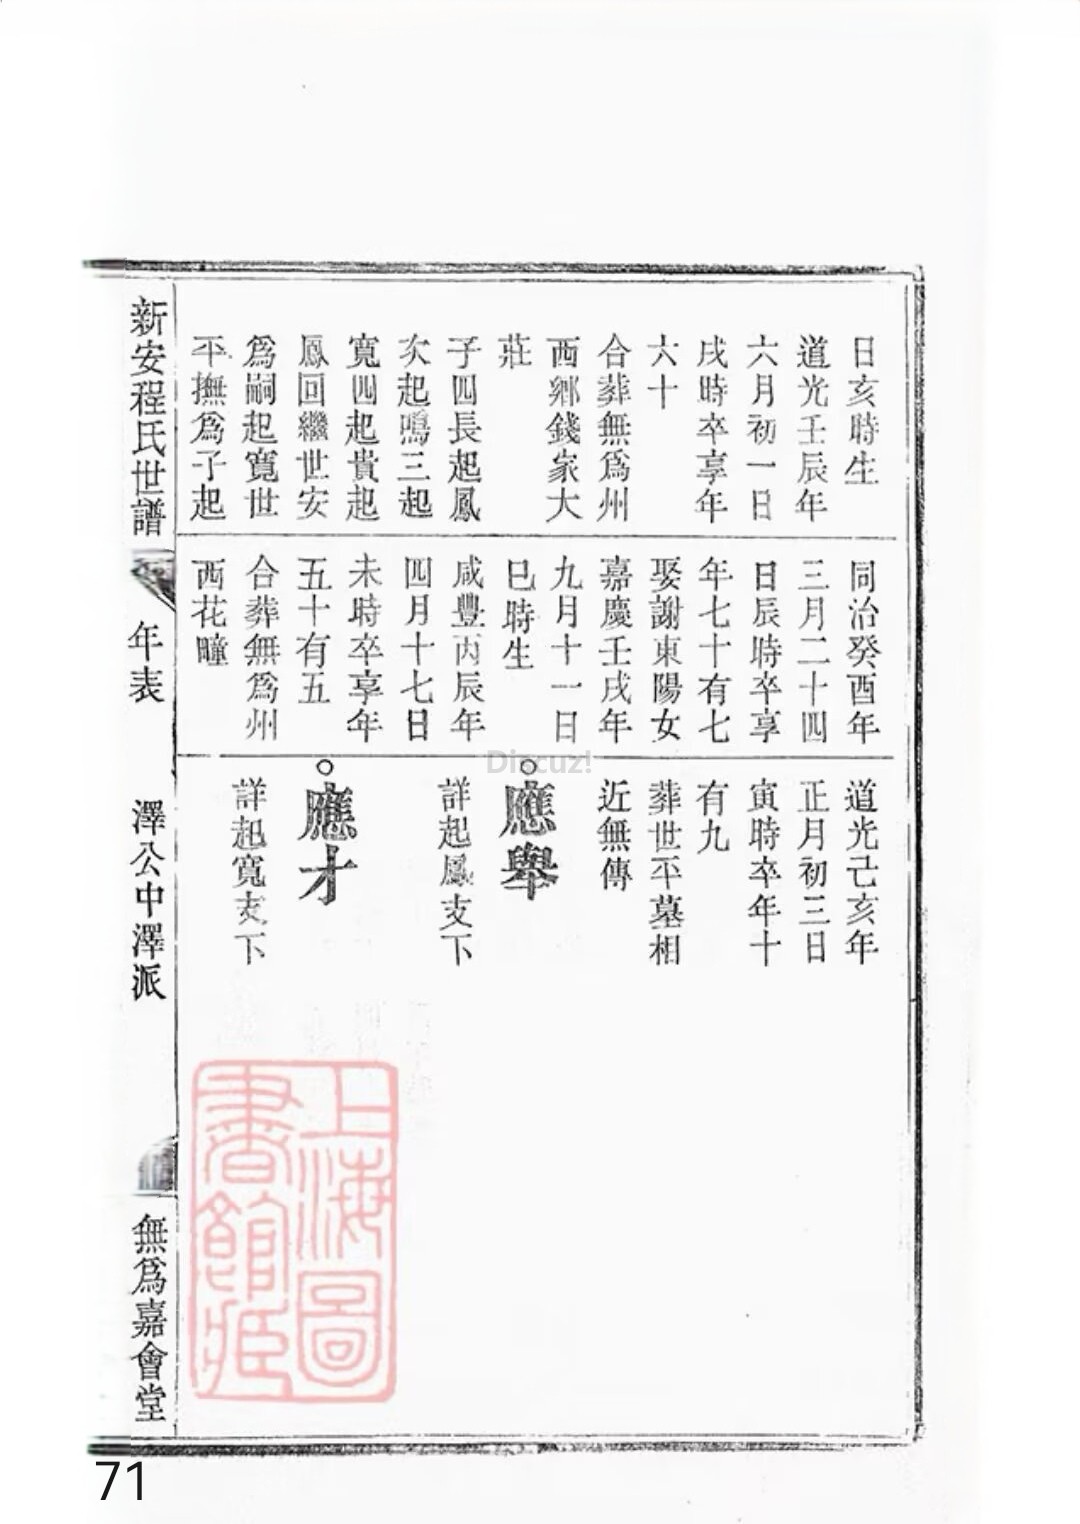 日亥時生
道光壬辰年
六月初一日
戌時卒享年
六十
合葬無爲州
西鄉錢家大
莊
子四長起鳳
次起鳴三起
寬四起貴起
鳳回繼世安
爲嗣起寬世
平撫爲子起
同治癸酉年
三月二十四
日辰時卒享
年七十有七
娶謝東陽女
嘉慶壬戌年
九月十一日
巳時生
咸豐丙辰年
四月十七日
未時卒享年
五十有五
合葬無爲州
西花疃
道光己亥年
正月初三日
寅時卒年十
有九
葬世平墓相
近無傳
應舉
詳起鳳支下
應才
詳起寬支下
新安程氏世譜
年表
澤公中澤派
無爲嘉會堂
上海圖書館藏
Discuz!
71